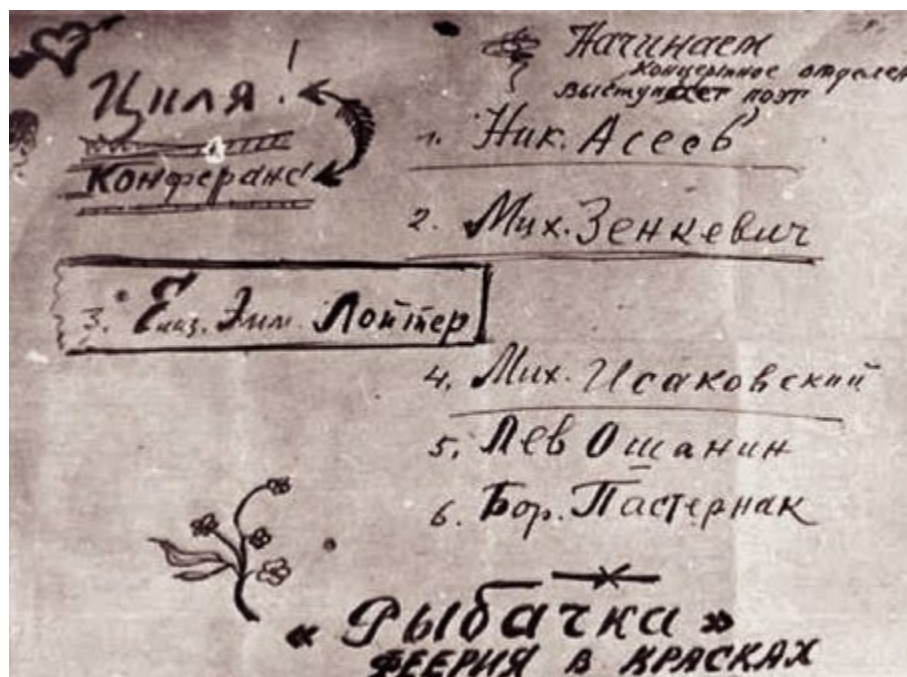 Циля!
Конферанс
Начинаем
концертное отделен
Выступает поэт
1. Ник. Асеев
2. Мих. Зенкевич
3. Елиз. Эмм. Лойтер
4. Мих. Исаковский
5. Лев Ошанин
6. Бор. Пастернак
«Рыбачка»
ФЕЕРИЯ В КРАСКАХ